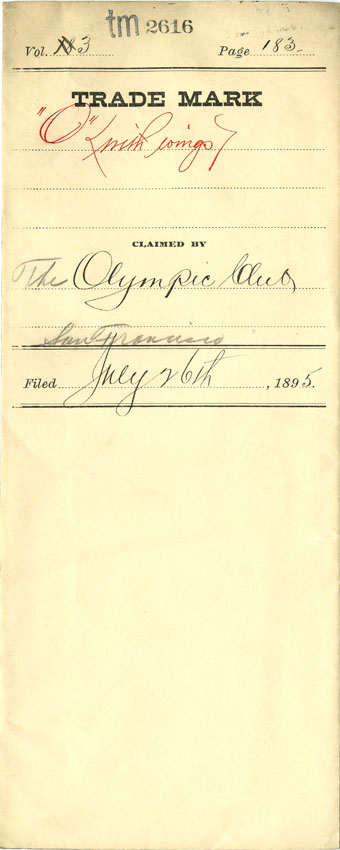 tm 2616
Vol. 3 Page 183.
TRADE MARK
"O" (with wings)
CLAIMED BY
The Olympic Club,
San Francisco
Filed July 26th, 1895.